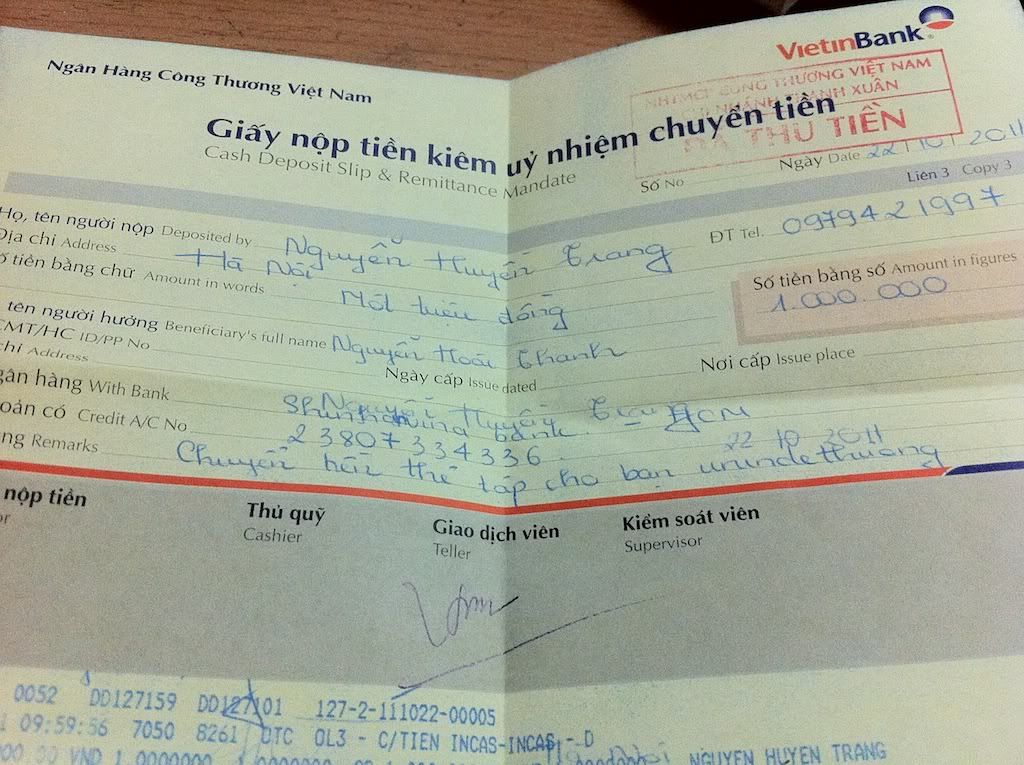 VietinBank
Ngân Hàng Công Thương Việt Nam
NHTMCP CÔNG THƯƠNG VIỆT NAM
NHÁNH THANH XUÂN
ĐÃ THU TIỀN
Giấy nộp tiền kiêm uỷ nhiệm chuyển tiền
Cash Deposit Slip & Remittance Mandate
Số No Ngày Date 22/10/2011
Liên 3 Copy 3
Họ, tên người nộp Deposited by Nguyễn Huyền Trang ĐT Tel. 0979421997
Địa chỉ Address Hà Nội
ố tiền bằng chữ Amount in words Một triệu đồng
Số tiền bằng số Amount in figures
1.000.000
tên người hưởng Beneficiary's full name Nguyễn Hoài Thanh
CMT/HC ID/PP No Ngày cấp Issue dated Nơi cấp Issue place
chỉ Address
gân hàng With Bank Nguyễn Huyền bank HCM
oản có Credit A/C No 23807334336 22 10 2011
ng Remarks Chuyển thẻ cho bạn
nộp tiền Thủ quỹ Giao dịch viên Kiểm soát viên
or Cashier Teller Supervisor
0052 DD127159 DD127101 127-2-111022-00005
1 09:59:56 7050 8261 OTC OL3 - C/TIEN INCAS-INCAS - D
000.00 VND 1.0000000 NGUYEN HUYEN TRANG